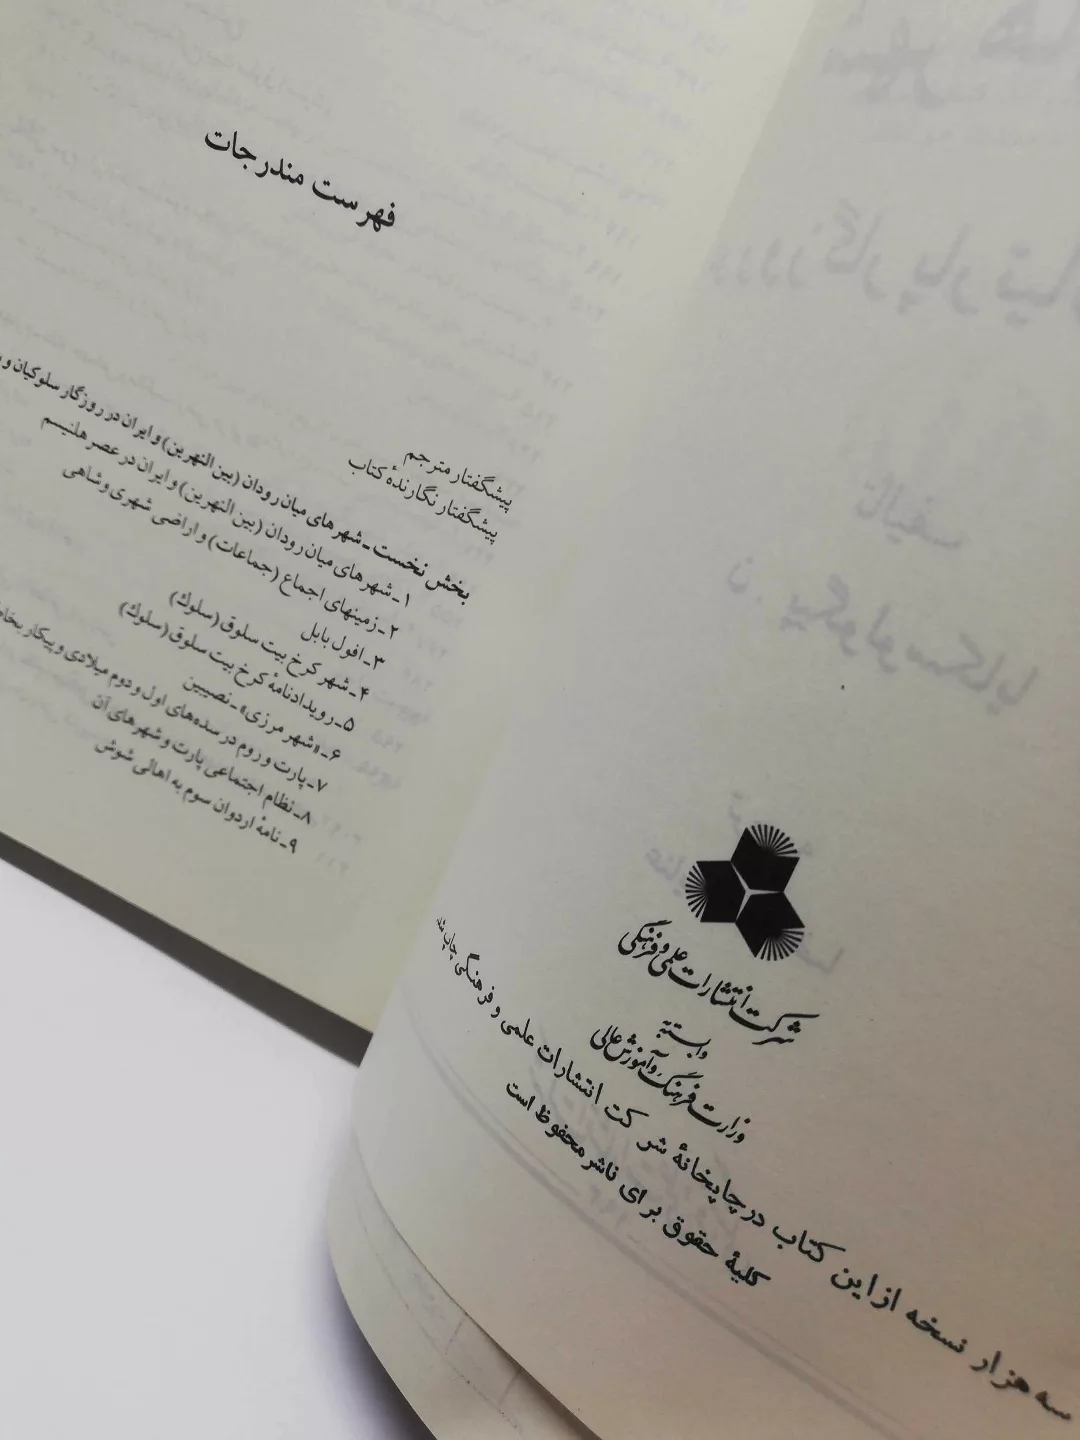 شرکت انتشارات علمی و فرهنگی
وابسته به
وزارت فرهنگ و آموزش عالی
سه هزار نسخه از این کتاب در چاپخانهٔ شرکت انتشارات علمی و فرهنگی چاپ شد
کلیهٔ حقوق برای ناشر محفوظ است
فهرست مندرجات
پیشگفتار مترجم
پیشگفتار نگارندهٔ کتاب
بخش نخست ـ شهرهای میان رودان (بین‌النهرین) و ایران در روزگار سلوکیان و
۱ـ شهرهای میان رودان (بین‌النهرین) و ایران در عصر هلنیسم
۲ـ زمینهای اجماع (جماعات) و اراضی شهری و شاهی
۳ـ افول بابل
۴ـ شهر کرخ بیت سلوق (سلوك)
۵ـ رویدادنامهٔ کرخ بیت سلوق (سلوك)
۶ـ «شهر مرزی» ـ نصیبین
۷ـ پارت و روم در سده‌های اول و دوم میلادی و پیکار
۸ـ نظام اجتماعی پارت و شهرهای آن
۹ـ نامهٔ اردوان سوم به اهالی شوش